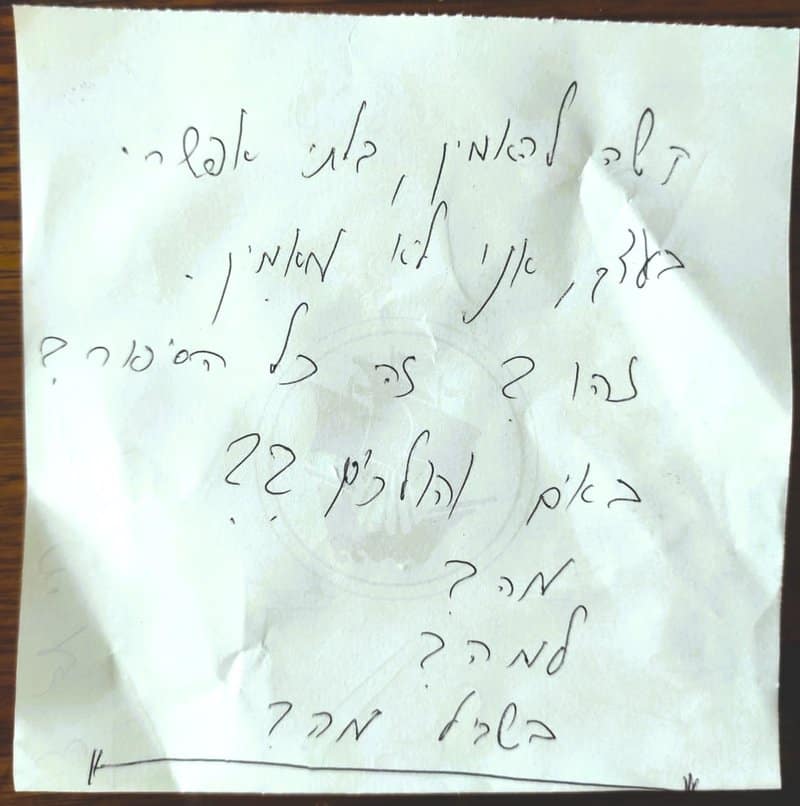 קשה להאמין, בלתי אפשרי.
בעצם, אני לא מאמין.
זהו? זה כל הסיפור?
באים והולכים??
מה?
למה?
בשביל מה?